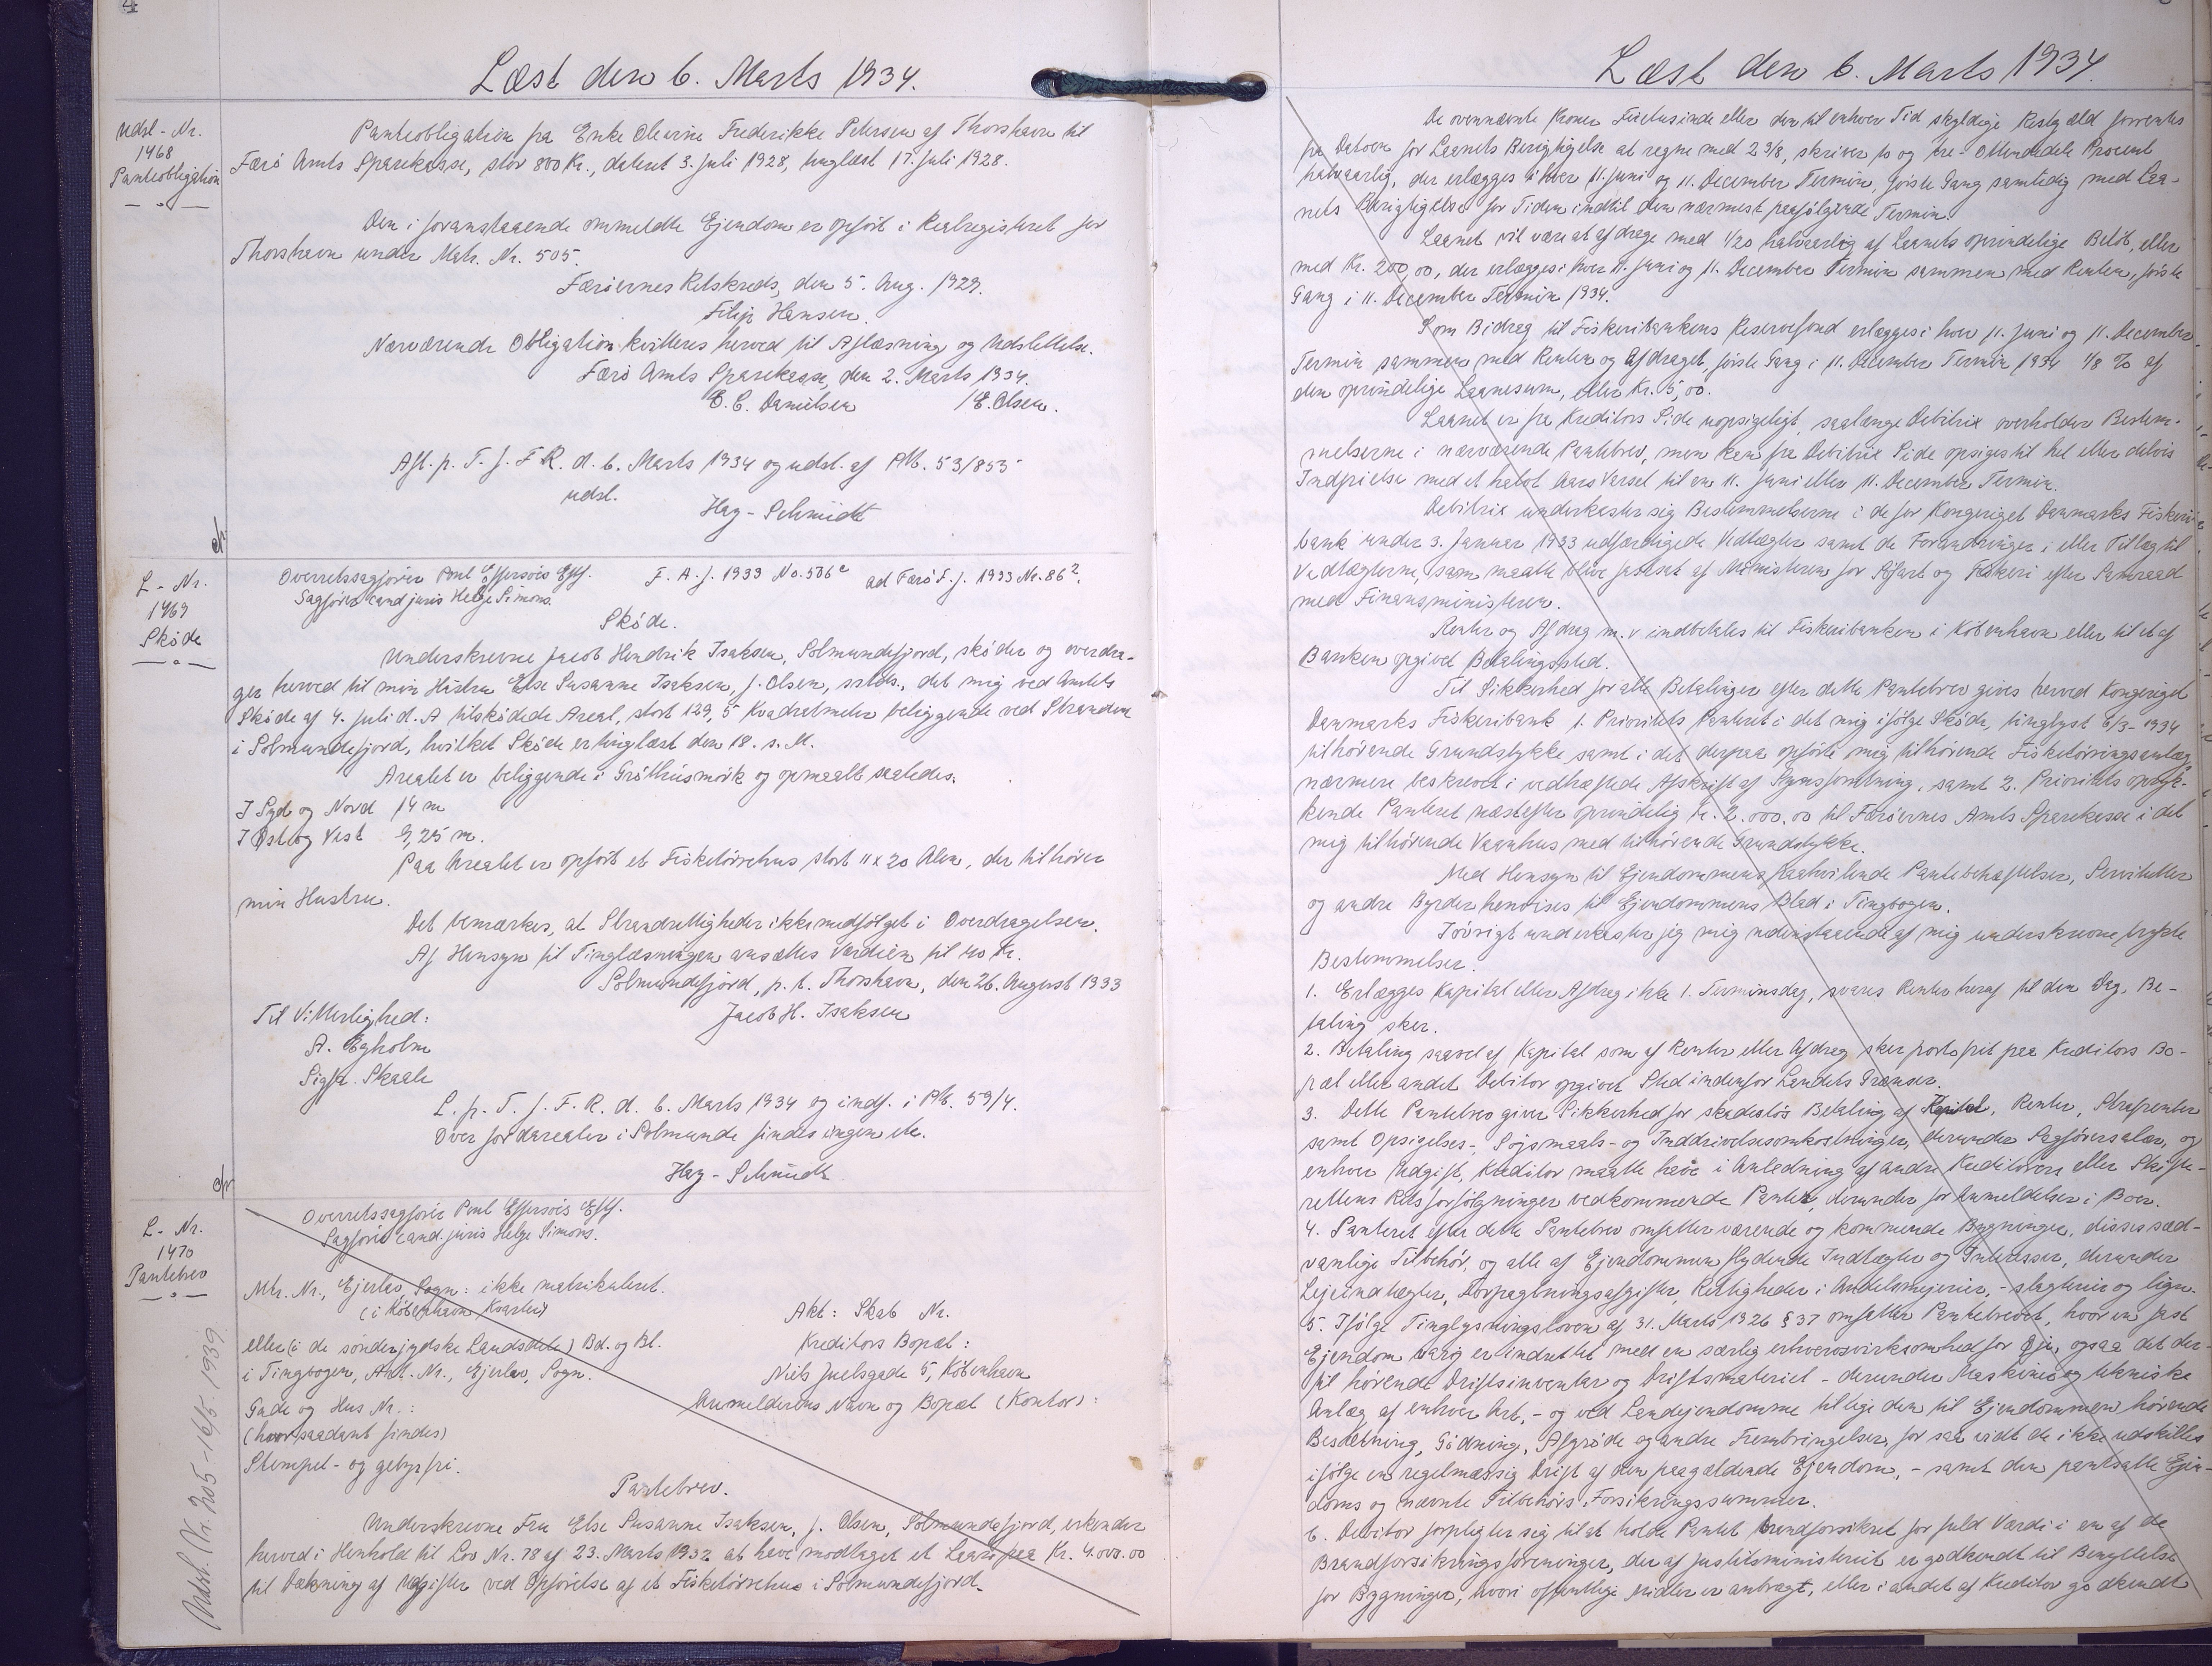 4
Læst den 6. Marts 1934.
Udsl - Nr.
1468
Panteobligation
Panteobligation fra Enke Olevine Frederikke Petersen af Thorshavn til
Færö Amts Sparekasse, stor 800 Kr., dateret 3. Juli 1928, tinglæst 17. Juli 1928.
Den i foranstaaende ommeldte Ejendom er opfört i Realregisteret for
Thorshavn under Matr. Nr. 505.
Færöernes Retskreds, den 5. Aug. 1929.
Filip Hansen.
Nærværende Obligation kvitteres herved til Aflæsning og Udslettelse.
Færö Amts Sparekasse, den 2. Marts 1934.
C. C. Danielsen /E. Olsen.
Afl. p. T. f. F R. d. 6. Marts 1934 og udsl. af PM. 53/855
udsl.
Hay - Schmidt
L - Nr.
1469
Sköde
Overretssagförer Poul Effersöes Eftf. F. A. J. 1933 No. 506 ad Færö F. J. 1933 Nr. 86².
Sagförer cand juris Helge Simons.
Sköde.
Underskrevne Jacob Hendrik Isaksen, Solmundefjord, sköder og overdra-
ger herved til min Hustru Else Susanne Isaksen, f. Olsen, sstds., det mig ved Amtets
Sköde af 4. Juli d. A tilsködede Areal, stort 129,5 Kvadratmeter beliggende ved Stranden
i Solmundefjord, hvilket Sköde er tinglæst den 18. s. M.
Arealet er beliggende i Gröthúsmörk og opmaalt saaledes:
I Syd og Nord 14 m
I Öst og Vest 9,25 m.
Paa Arealet er opfört et Fisketörrehus stort 11 x 20 Alen, der tilhörer
min Hustru.
Det bemærkes, at Strandrettigheder ikke medfölger i Overdragelsen.
Af Hensyn til Tinglæsningen ansættes Værdien til 40 Kr.
Solmundefjord, p. t. Thorshavn, den 26. August 1933
Til Vitterlighed: Jacob H. Isaksen
A. Egholm
Sigfr. Skaale
L. p. T. f. F. R. d. 6. Marts 1934 og indf. i PM. 59/4.
Over for darealer i Solmunde findes ingen etc.
Hay - Schmidt
L - Nr.
1470
Pantebrev
Udsl. Nr. 205 - 16/5 1939
Overretssagförer Poul Effersöes Eftf.
Sagförer cand. juris Helge Simons.
Mtr. Nr., Ejerlav, Sogn: ikke matrikuleret.
(i Köbenhavn Kvarter) Akt: Skab Nr.
eller (i de sönderjydske Landsdele) Bd. og Bl. Kreditors Bopæl:
i Tingbogen, Art. Nr., Ejerlav, Sogn. Niels Juelsgade 5, Köbenhavn
Gade og Hus Nr.: Anmelderens Navn og Bopæl (Kontor):
(hvor saadant findes)
Stempel- og gebyrfri.
Pantebrev.
Underskrevne Fru Else Susanne Isaksen, f. Olsen, Solmundefjord, erkender
herved i Henhold til Lov Nr. 78 af 23. Marts 1932 at have modtaget et Laan paa Kr. 4.000.00
til Dækning af Udgifter ved Opförelse af et Fisketörrehus i Solmundefjord.
Læst den 6. Marts 1934.
De ovennævnte Kroner Firetusinde eller den til enhver Tid skyldige Restgæld forrentes
fra Datoen for Laanets Berigtigelse at regne med 2 3/8, skriver to og tre - Ottendedele Procent
halvaarlig, der erlægges i hver 11. Juni og 11. December Termin, förste Gang samtidig med Laa-
nets Berigtigelse for Tiden indtil den nærmest paafölgende Termin.
Laanet vil være at afdrage med 1/20 halvaarlig af Laanets oprindelige Belöb, eller
med Kr. 200,00, der erlægges i hver 11. Juni og 11. December Termin sammen med Renten, förste
Gang i 11. December Termin 1934.
Som Bidrag til Fiskeribankens Reservefond erlægges i hver 11. Juni og 11. December
Termin sammen med Renten og Afdraget, förste Gang i 11. December Termin 1934 1/8 % af
den oprindelige Laanesum, eller Kr. 5,00.
Laanet er fra Kreditors Side uopsigeligt, saalænge Debitrix overholder Bestem-
melserne i nærværende Pantebrev, men kan fra Debitrix Side opsiges til hel eller delvis
Indfrielse med et halvt Aars Varsel til en 11. Juni eller 11. December Termin.
Debitrix underkaster sig Bestemmelserne i de for Kongeriget Danmarks Fiskeri-
bank under 3. Januar 1933 udfærdigede Vedtægter samt de Forandringer i eller Tillæg til
Vedtægterne, som maatte blive fastsat af Ministeren for Söfart og Fiskeri efter Samraad
med Finansministeren.
Renter og Afdrag m. v indbetales til Fiskeribanken i Köbenhavn eller til et af
Banken opgivet Betalingssted.
Til Sikkerhed for alle Betalinger efter dette Pantebrev gives herved Kongeriget
Danmarks Fiskeribank 1. Prioritets Panteret i det mig ifölge Sköde, tinglyst 6/3-1934
tilhörende Grundstykke samt i det derpaa opförte mig tilhörende Fisketörringsanlæg
nærmere beskrevet i vedhæftede Afskrift af Synsforretning, samt 2. Prioritets opryk-
kende Panteret næstefter oprindelig Kr. 2.000.00 til Færöernes Amts Sparekasse i det
mig tilhörende Vaanhus med tilhörende Grundstykke.
Med Hensyn til Ejendommens paahvilende Pantebehæftelser, Servitutter
og andre Byrder henvises til Ejendommens Blad i Tingbogen.
Iövrigt underkaster jeg mig nedenstaaende af mig underskrevne trykte
Bestemmelser.
1. Erlægges Kapital eller Afdrag ikke 1. Terminsdag, svares Renter heraf til den Dag, Be-
taling sker.
2. Betaling saavel af Kapital som af Renter eller Afdrag sker portofrit paa Kreditors Bo-
pæl eller andet Debitor opgivet Sted indenfor Landets Grænser.
3. Dette Pantebrev giver Sikkerhed for skadeslös Betaling af Kapital, Renter, Strafrenter
samt Opsigelses-, Sögsmaals- og Inddrivelsesomkostninger, derunder Sagförersalær, og
enhver Udgift, Kreditor maatte have i Anledning af andre Kreditorers eller Skifte-
rettens Retsforfölgninger vedkommende Pantet, derunder for Anmeldelser i Boer.
4. Panteret efter dette Pantebrev omfatter værende og kommende Bygninger, disses sæd-
vanlige Tilbehör, og alle af Ejendommen flydende Indtægter og Intrasser, derunder
Lejeindtægter, Forpagtningsafgifter, Rettigheder i Andelsmejerier, - slagterier og lign.
5. Ifölge Tinglysningsloven af 31. Marts 1926 § 37 omfatter Pantebrevet, hvor en fast
Ejendom varig er indrettet med en særlig erhvervsvirksomhed for Öje, ogsaa det der-
til hörende Driftsinventar og Driftsmateriel - derunder Maskiner og tekniske
Anlæg af enhver Art, - og ved Landejendomme tillige den til Ejendommen hörende
Besætning, Gödning, Afgröde og andre Frembringelser, for saa vidt de ikke udskilles
ifölge en regelmæssig Drift af den paagældende Ejendom, - samt den pantsatte Ejen-
doms og nævnte Tilbehörs Forsikringssummer.
6. Debitor forpligter sig til at holde Pantet brandforsikret for fuld Værdi i en af de
Brandforsikringsforeninger, der af Justitsministeriet er godkendt til Benyttelse
for Bygninger, hvori offentlige Midler er anbragt, eller i andet af Kreditor godkendt